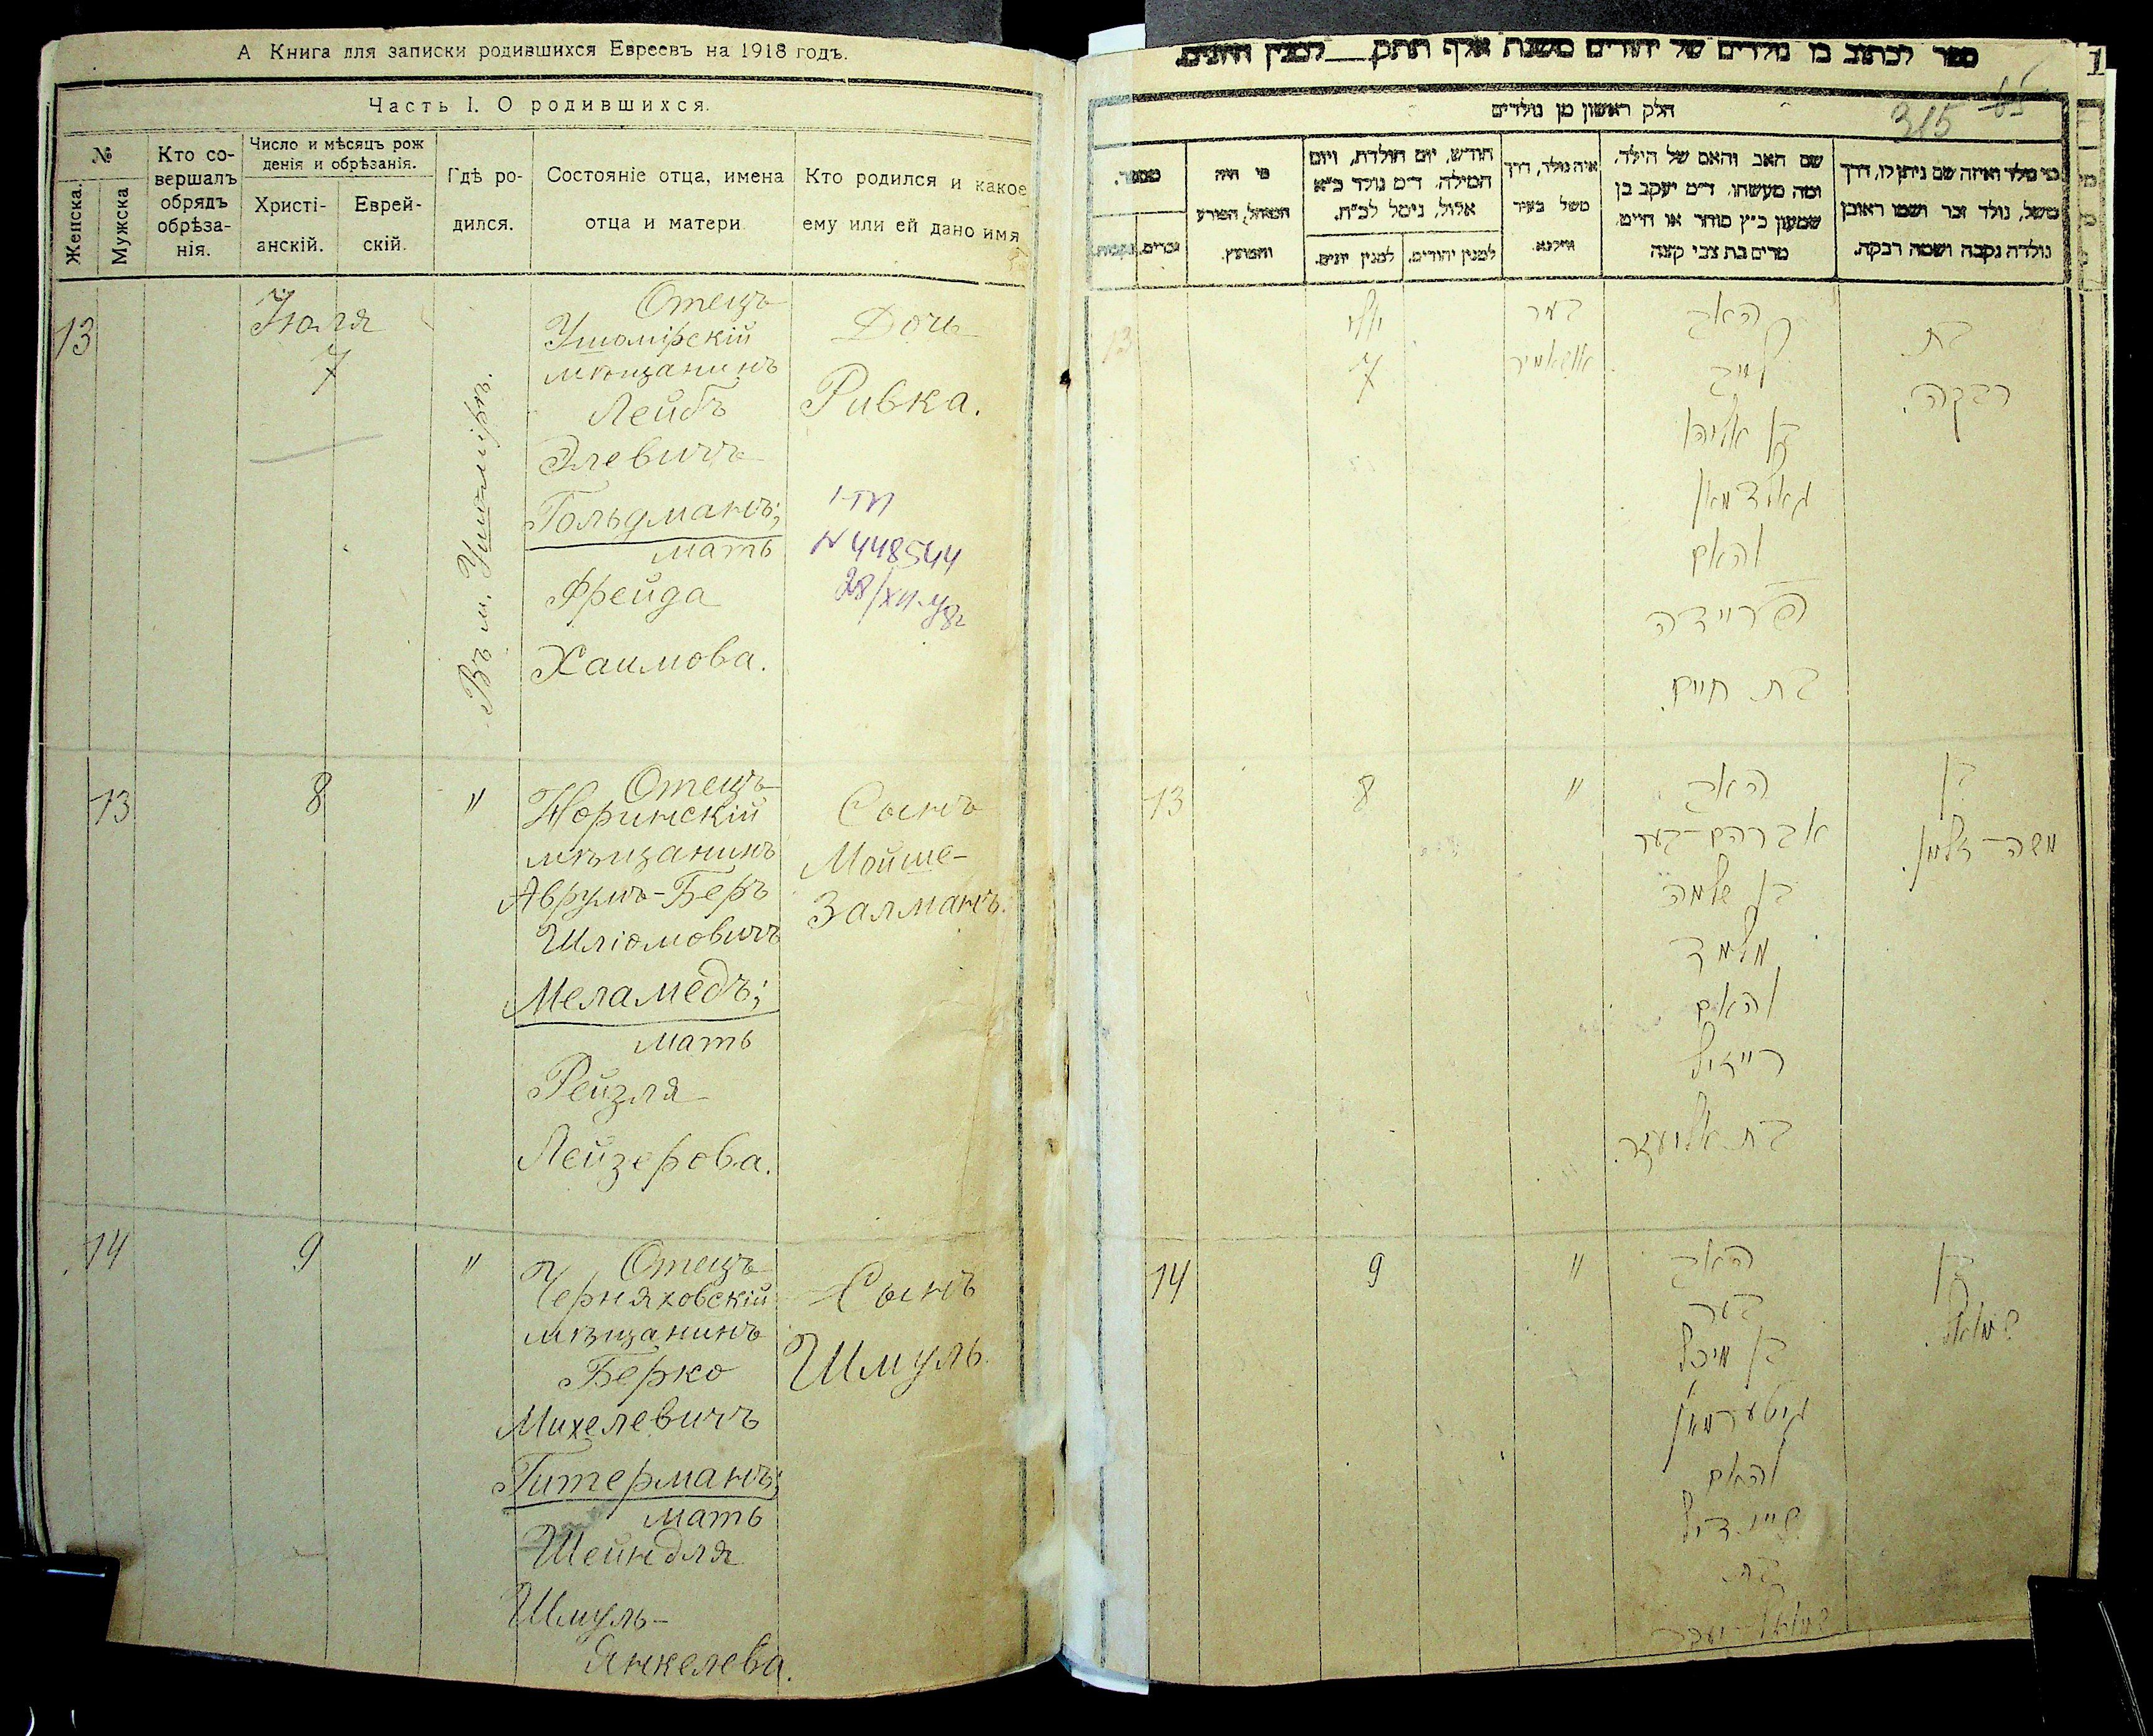 А Книга для записки родившихся Евреевъ на 1918 годъ.
Часть I. О родившихся.
№
Женска.
Мужска
Кто со-
вершалъ
обрядъ
обрѣза-
нія.
Число и мѣсяцъ рож
денія и обрѣзанія.
Христі-
анскій.
Еврей-
скій.
Гдѣ ро-
дился.
Состояніе отца, имена
отца и матери
Кто родился и какое
ему или ей дано имя
13
Іюля
7
Въ м. Ушомірѣ.
Отецъ
Ушомірскій
мѣщанинъ
Лейбъ
Элевичъ
Гольдманъ;
мать
Фрейда
Хаимова.
Дочь
Ривка.
N 448544
13
8
"
Отецъ
Норинскій
мѣщанинъ
Аврумъ-Беръ
Шліомовичъ
Меламедъ;
мать
Рейзля
Лейзерова.
Сынъ
Мойше-
Залманъ.
14
9
"
Отецъ
Черняховскій
мѣщанинъ
Берко
Михелевичъ
Гитерманъ;
мать
Шейндля
Шмуль-
Янкелева.
Сынъ
Шмуль.
ספר לכתוב בו נולדים של יהודים משנת אלף תתק לסנין היונים.
315
חלק ראשון מן נולדים
מי נולד ואיזה שם ניתן לו, דרך
משל, נולד זכר ושמו ראובן
נולדה נקבה ושמה רבקה.
שם האב והאם של הילד,
ומה מעשהו. ד״מ יעקב בן
שמעון כ״ץ סוחר או חייט
מרים בת צבי קצה
איה נולד, דרך
משל בעיר
ווילנא.
חודש, יום הולדת, ויום
המילה. ד״מ נולד כ״א
אלול, נימל לכ״ח.
למנין יהודים.
למנין יונים.
מי היה
המוהל, הפורע
והמוצץ.
מספר.
זכרים.
נקבות.
13
יולי
7
האב
לייב
בן אליהו
גאלדמאן
והאם
פריידה
בת חיים.
בת
רבקה.
13
8
"
האב
אברהם-בער
בן שלמה
מלמד
והאם
רייזיל
בת אליעזר.
בן
משה-זלמן.
14
9
"
האב
בער
בן מיכל
גיטערמאן
והאם
שיינדיל
בת
בן
שמואל.